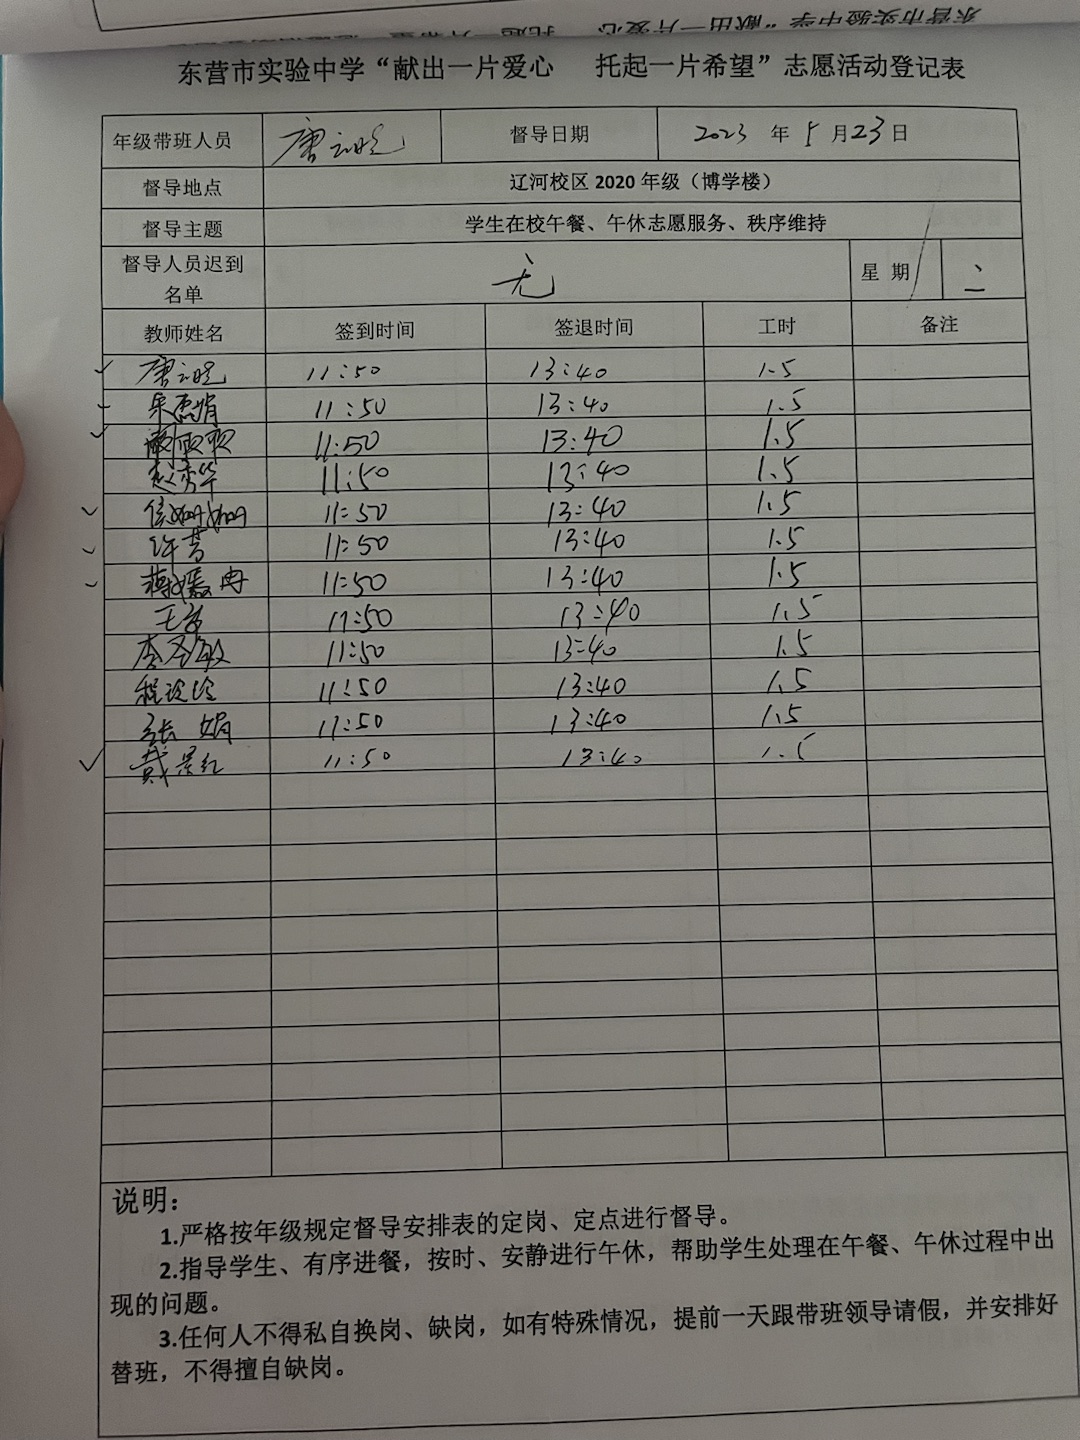 东营市实验中学“献出一片爱心 托起一片希望”志愿活动登记表
年级带班人员 唐 督导日期 2023 年 5 月 23 日
督导地点 辽河校区 2020 年级（博学楼）
督导主题 学生在校午餐、午休志愿服务、秩序维持
督导人员迟到名单 无 星 期 二
教师姓名 签到时间 签退时间 工时 备注
唐 11:50 13:40 1.5
宋磊娟 11:50 13:40 1.5
11:50 13:40 1.5
赵秀华 11:50 13:40 1.5
侯姗姗 11:50 13:40 1.5
许芳 11:50 13:40 1.5
蒋媛冉 11:50 13:40 1.5
王 11:50 13:40 1.5
李圣敏 11:50 13:40 1.5
程 11:50 13:40 1.5
张 娟 11:50 13:40 1.5
戴景红 11:50 13:40 1.5
说明：
1.严格按年级规定督导安排表的定岗、定点进行督导。
2.指导学生、有序进餐，按时、安静进行午休，帮助学生处理在午餐、午休过程中出
现的问题。
3.任何人不得私自换岗、缺岗，如有特殊情况，提前一天跟带班领导请假，并安排好
替班，不得擅自缺岗。